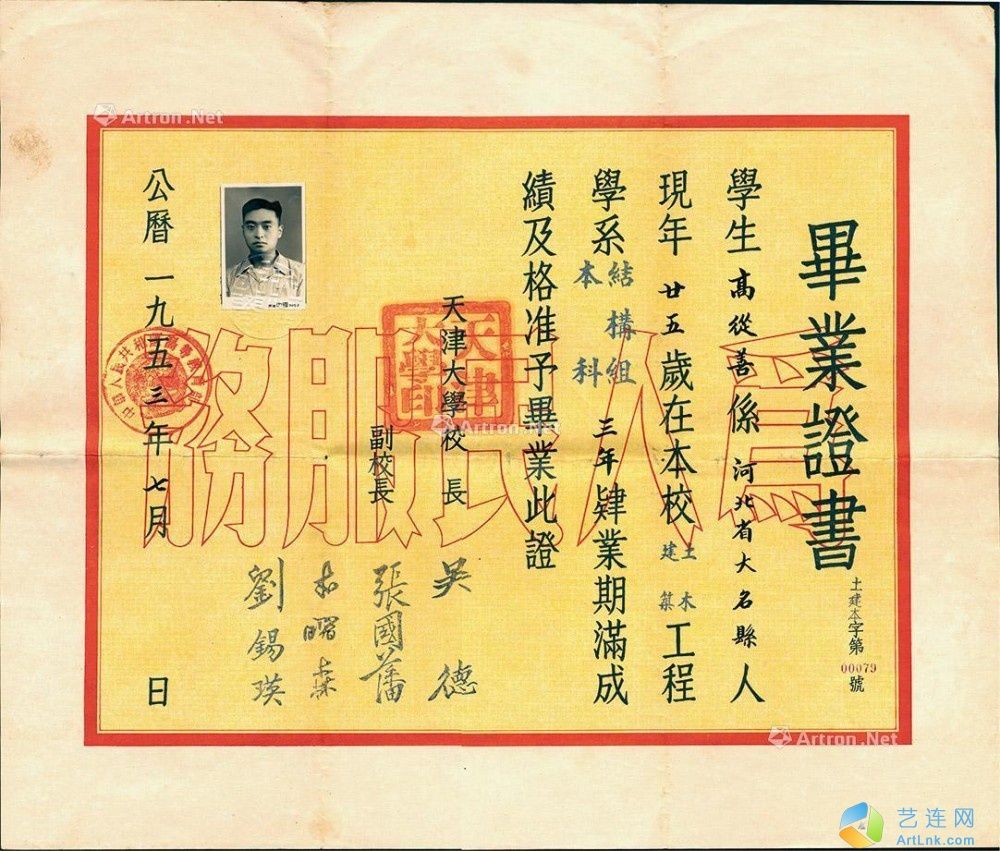 畢業證書
土建本字第
00079
號
學生高從善係河北省大名縣人
現年廿五歲在本校土木建築工程
學系結構組本科三年肄業期滿成
績及格准予畢業此證
天津大學校長
吳德
副校長
張國藩
劉錫瑛
公曆一九五三年七月 日
為人民服務
天津大學印
Artron.Net
Artron.Net
Artron.Net
艺连网
ArtLnk.com